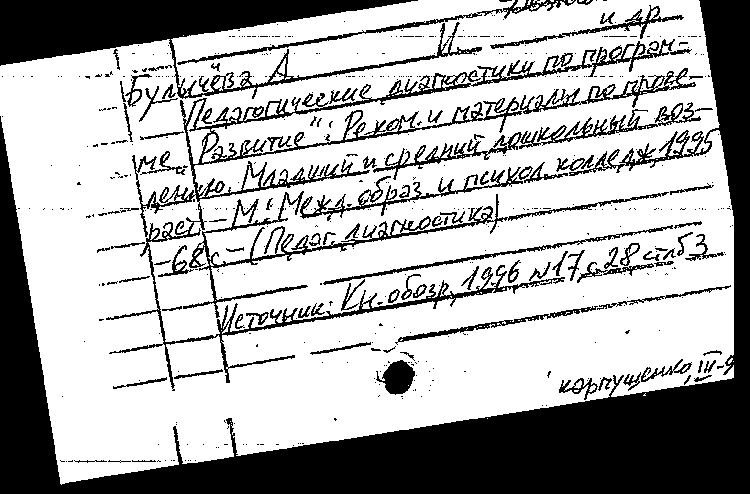 Булычёва, А. И. и др.
Педагогические диагностики по програм-
ме „Развитие“: Реком. и материалы по прове-
дению. Младший и средний дошкольный воз-
раст. – М.: Межд. образ. и психол. колледж, 1995
– 68 с. – (Педаг. диагностика)
Источник: Кн. обозр., 1996 №17, с. 28, стлб 3
Карпущенко, III-9